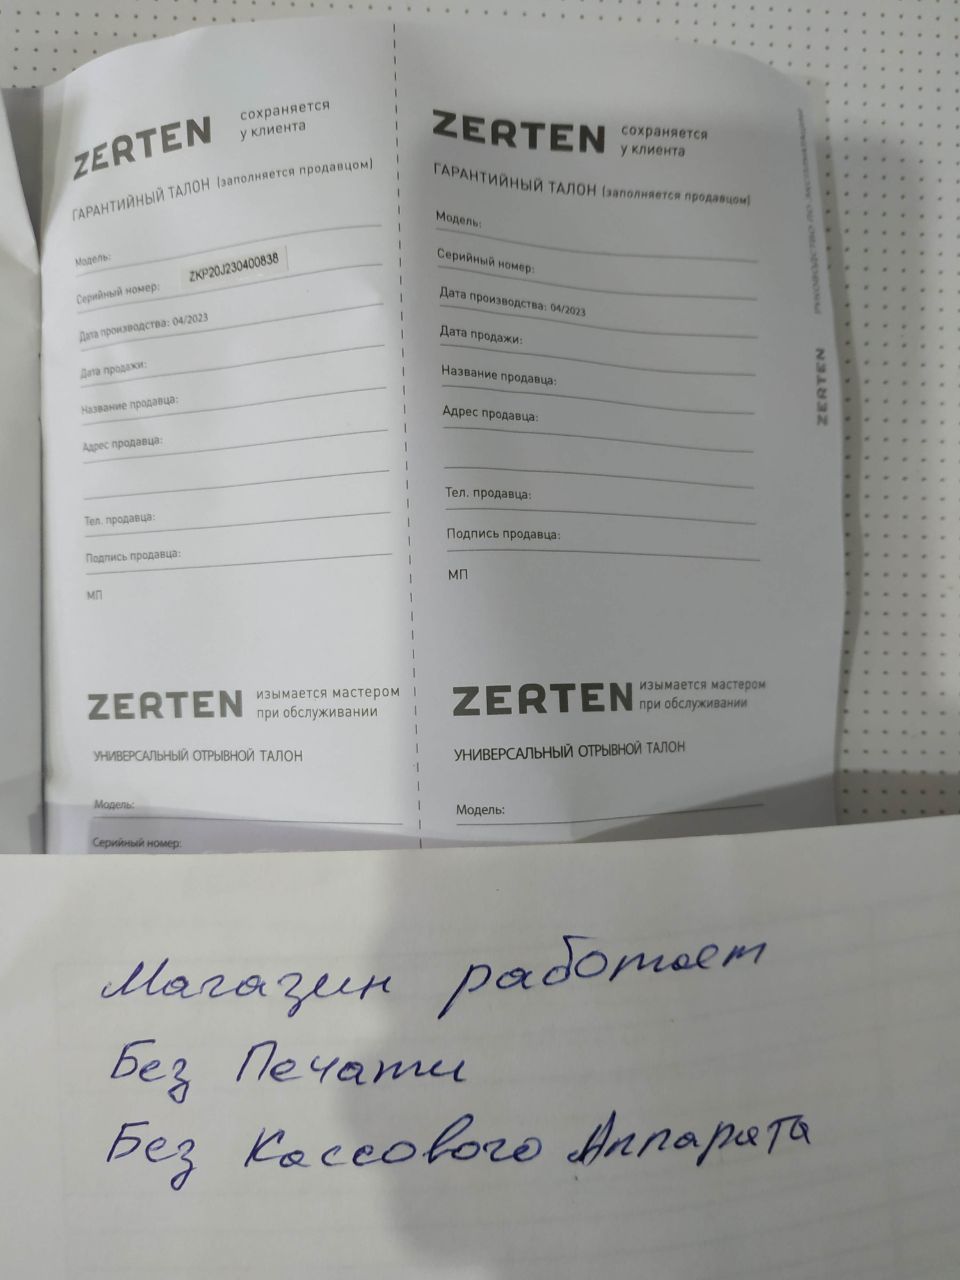 ZERTEN сохраняется
у клиента
ГАРАНТИЙНЫЙ ТАЛОН (заполняется продавцом)
Модель:
Серийный номер: ZKP20J230400838
Дата производства: 04/2023
Дата продажи:
Название продавца:
Адрес продавца:
Тел. продавца:
Подпись продавца:
МП
ZERTEN изымается мастером
при обслуживании
УНИВЕРСАЛЬНЫЙ ОТРЫВНОЙ ТАЛОН
Модель:
Серийный номер:
ZERTEN сохраняется
у клиента
ГАРАНТИЙНЫЙ ТАЛОН (заполняется продавцом)
Модель:
Серийный номер:
Дата производства: 04/2023
Дата продажи:
Название продавца:
Адрес продавца:
Тел. продавца:
Подпись продавца:
МП
ZERTEN изымается мастером
при обслуживании
УНИВЕРСАЛЬНЫЙ ОТРЫВНОЙ ТАЛОН
Модель:
ZERTEN РУКОВОДСТВО ПО ЭКСПЛУАТАЦИИ
Магазин работает
Без Печати
Без Кассового Аппарата